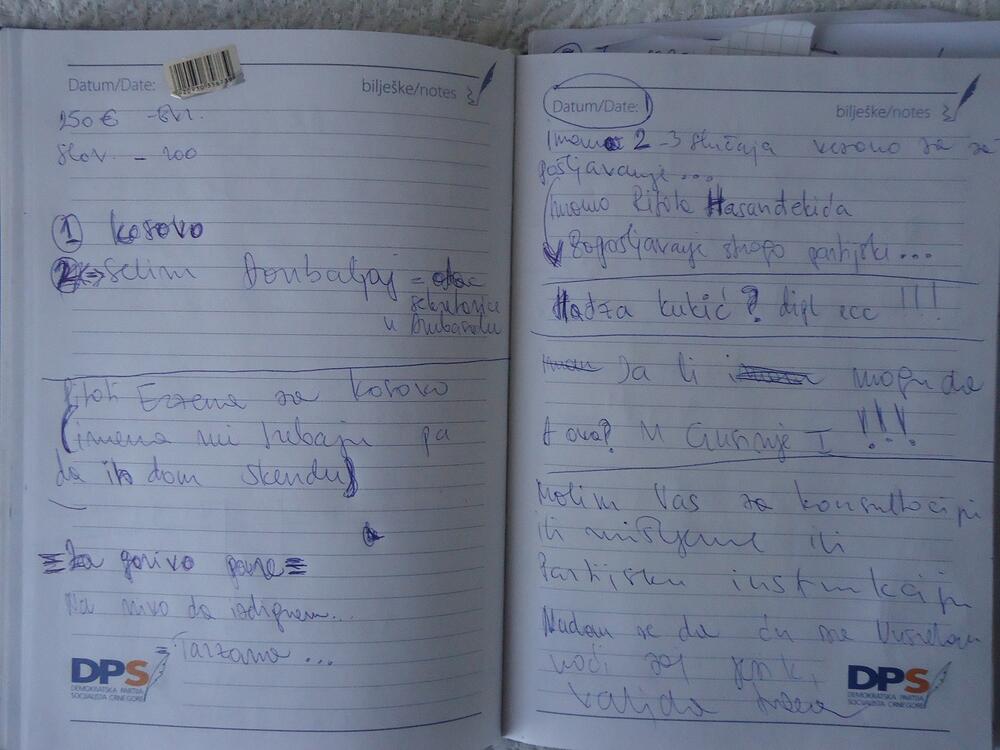 Datum/Date:
bilješke/notes
250 €
Slov. - 200
1 Kosovo
2 => Selim = otac
sekretarice
u Ambasadi
Pitati za Kosovo
(imena mi trebaju pa
da ih dam Skendu)
Za gorivo pare
Na nivo da izdignem...
= Tarzana ...
DPS
DEMOKRATSKA PARTIJA
SOCIJALISTA CRNE GORE
Datum/Date:
bilješke/notes
Imamo 2-3 slučaja vezano za za
pošljavanje...
Imamo Rifata Hasandekića
Zapošljavanje strogo partijski...
Hadža Kukić ? dipl ecc !!!
Da li mogu da
A ovo? M Gusinje I !!!
Molim Vas za konsultaciju
ili mišljenje ili
Partijsku instrukciju
Nadam se da ću sa
naći zaj jezik,
valjda
DPS
DEMOKRATSKA PARTIJA
SOCIJALISTA CRNE GORE